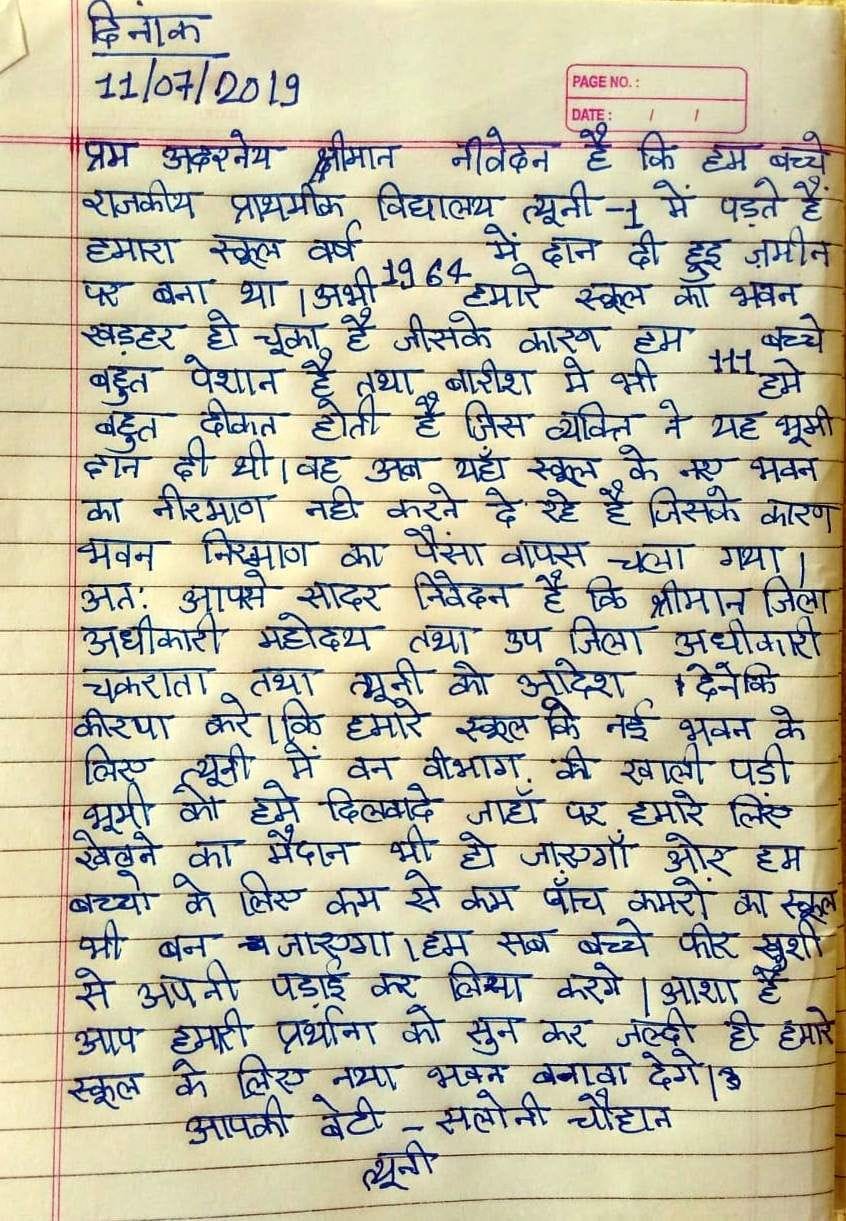 दिनांक
11/07/2019
PAGE NO. :
DATE : / /
प्रम अदरनेय श्रीमान नीवेदन है कि हम बच्चे
राजकीय प्राथमीक विद्यालय त्यूनी -1 में पड़ते हैं
हमारा स्कूल वर्ष 1964 में दान दी हुइ ज़मीन
पर बना था। अभी हमारे स्कूल का भवन
खड़हर हो चूका है जीसके कारण हम 111 बच्चे
बहुत पेशान है तथा बारीश मे भी हमे
बहुत दीकत होती है जिस व्यक्ति ने यह भूमी
दान दी थी। वह अब यहाँ स्कूल के नए भवन
का नीरमाण नही करने दे रहे है जिसके कारण
भवन निरमाण का पैंसा वापस चला गया।
अतः आपसे सादर निवेदन है कि श्रीमान जिला
अधीकारी महोदय तथा उप जिला अधीकारी
चकराता तथा त्यूनी को आदेश देनेकि
कीरपा करे। कि हमारे स्कूल के नई भवन के
लिए त्यूनी में वन वीभाग की खाली पड़ी
भूमी को हमे दिलवादे जाहाँ पर हमारे लिए
खेलने का मैदान भी हो जाएगाँ ओर हम
बच्चो के लिए कम से कम पाँच कमरों का स्कूल
भी बन जाएगा। हम सब बच्चे फीर खुशी
से अपनी पड़ाई कर लिया करगे। आशा है
आप हमारी प्रर्थाना को सुन कर जल्दी ही हमारे
स्कूल के लिए नया भवन बनावा देगे।
आपकी बेटी - सलोनी चौहान
त्यूनी